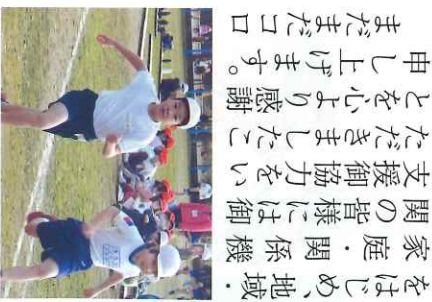 をはじめ、地域・
家庭・関係機
関の皆様には御
支援御協力をい
ただきましたこ
とを心より感謝
申し上げます。
まだまだコロ